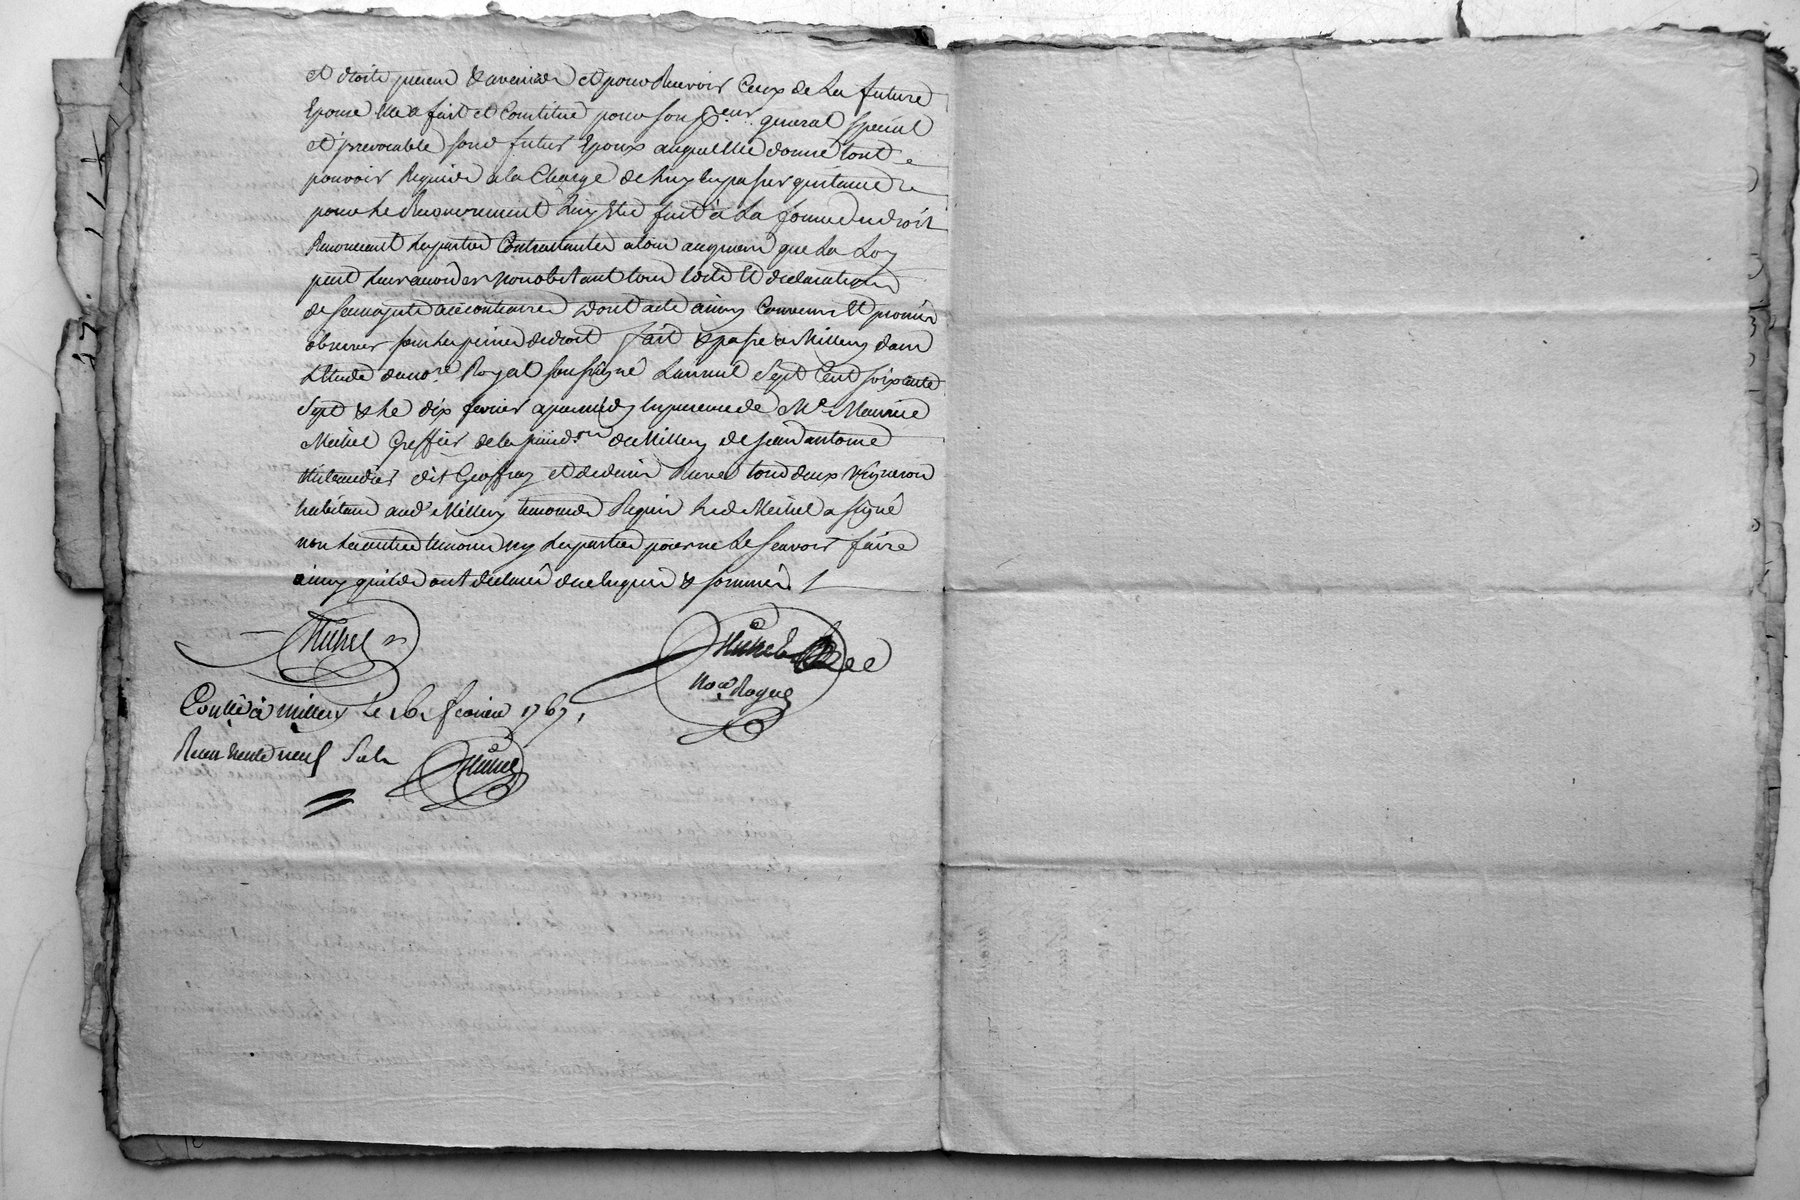 et droits presens & avenir et pour Recevoir Ceux de La future
Epouse Elle a fait et Constitué pour son p.eur general special
et irrevocable sond futur Epoux auquel Elle donne tout
pouvoir Requis a la Charge de luy en passer quittance
pour le Recouvrement luy Etre fait a La forme du droit
Renonceant les parties Contractantes a loix auquien que La Loy
peut leur accorder nonobstant tous Edits et declarations
de sa majesté a ce contraires Dont acte ainsy Convenu Et promis
observer sous les peines de droit fait & passé a Millery dans
L'Etude du no.re Royal soussigné L'an mil Sept Cent soixante
Sept & le dix fevrier apres midy en presence de Me Maurice
Michel Greffier de la juri.d.on de Millery de jean antoine
dit Geoffray et de denis tous deux Vigneron
habitans aud. Millery temoins Requis led. Michel a signé
non les autres temoins ny les parties pour ne Le Scavoir faire
ainsy quils ont declaré de ce Enquis & sommés /
Michel
Michel
No.re Royal
Con.llé a millery Le 16. fevrier 1767.
Recu trente neuf Sols
Michel